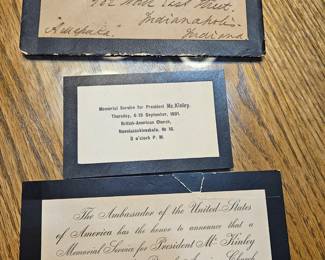 West Street,
Indianapolis
"America" Indiana
Memorial Service for President Mc. Kinley.
Thursday, 6-19 September, 1901.
British-American Church,
Novoisaakievskaia, № 16.
3 o'clock P. M.
The Ambassador of the United States
of America has the honor to announce that a
Memorial Service for President Mc Kinley
Church